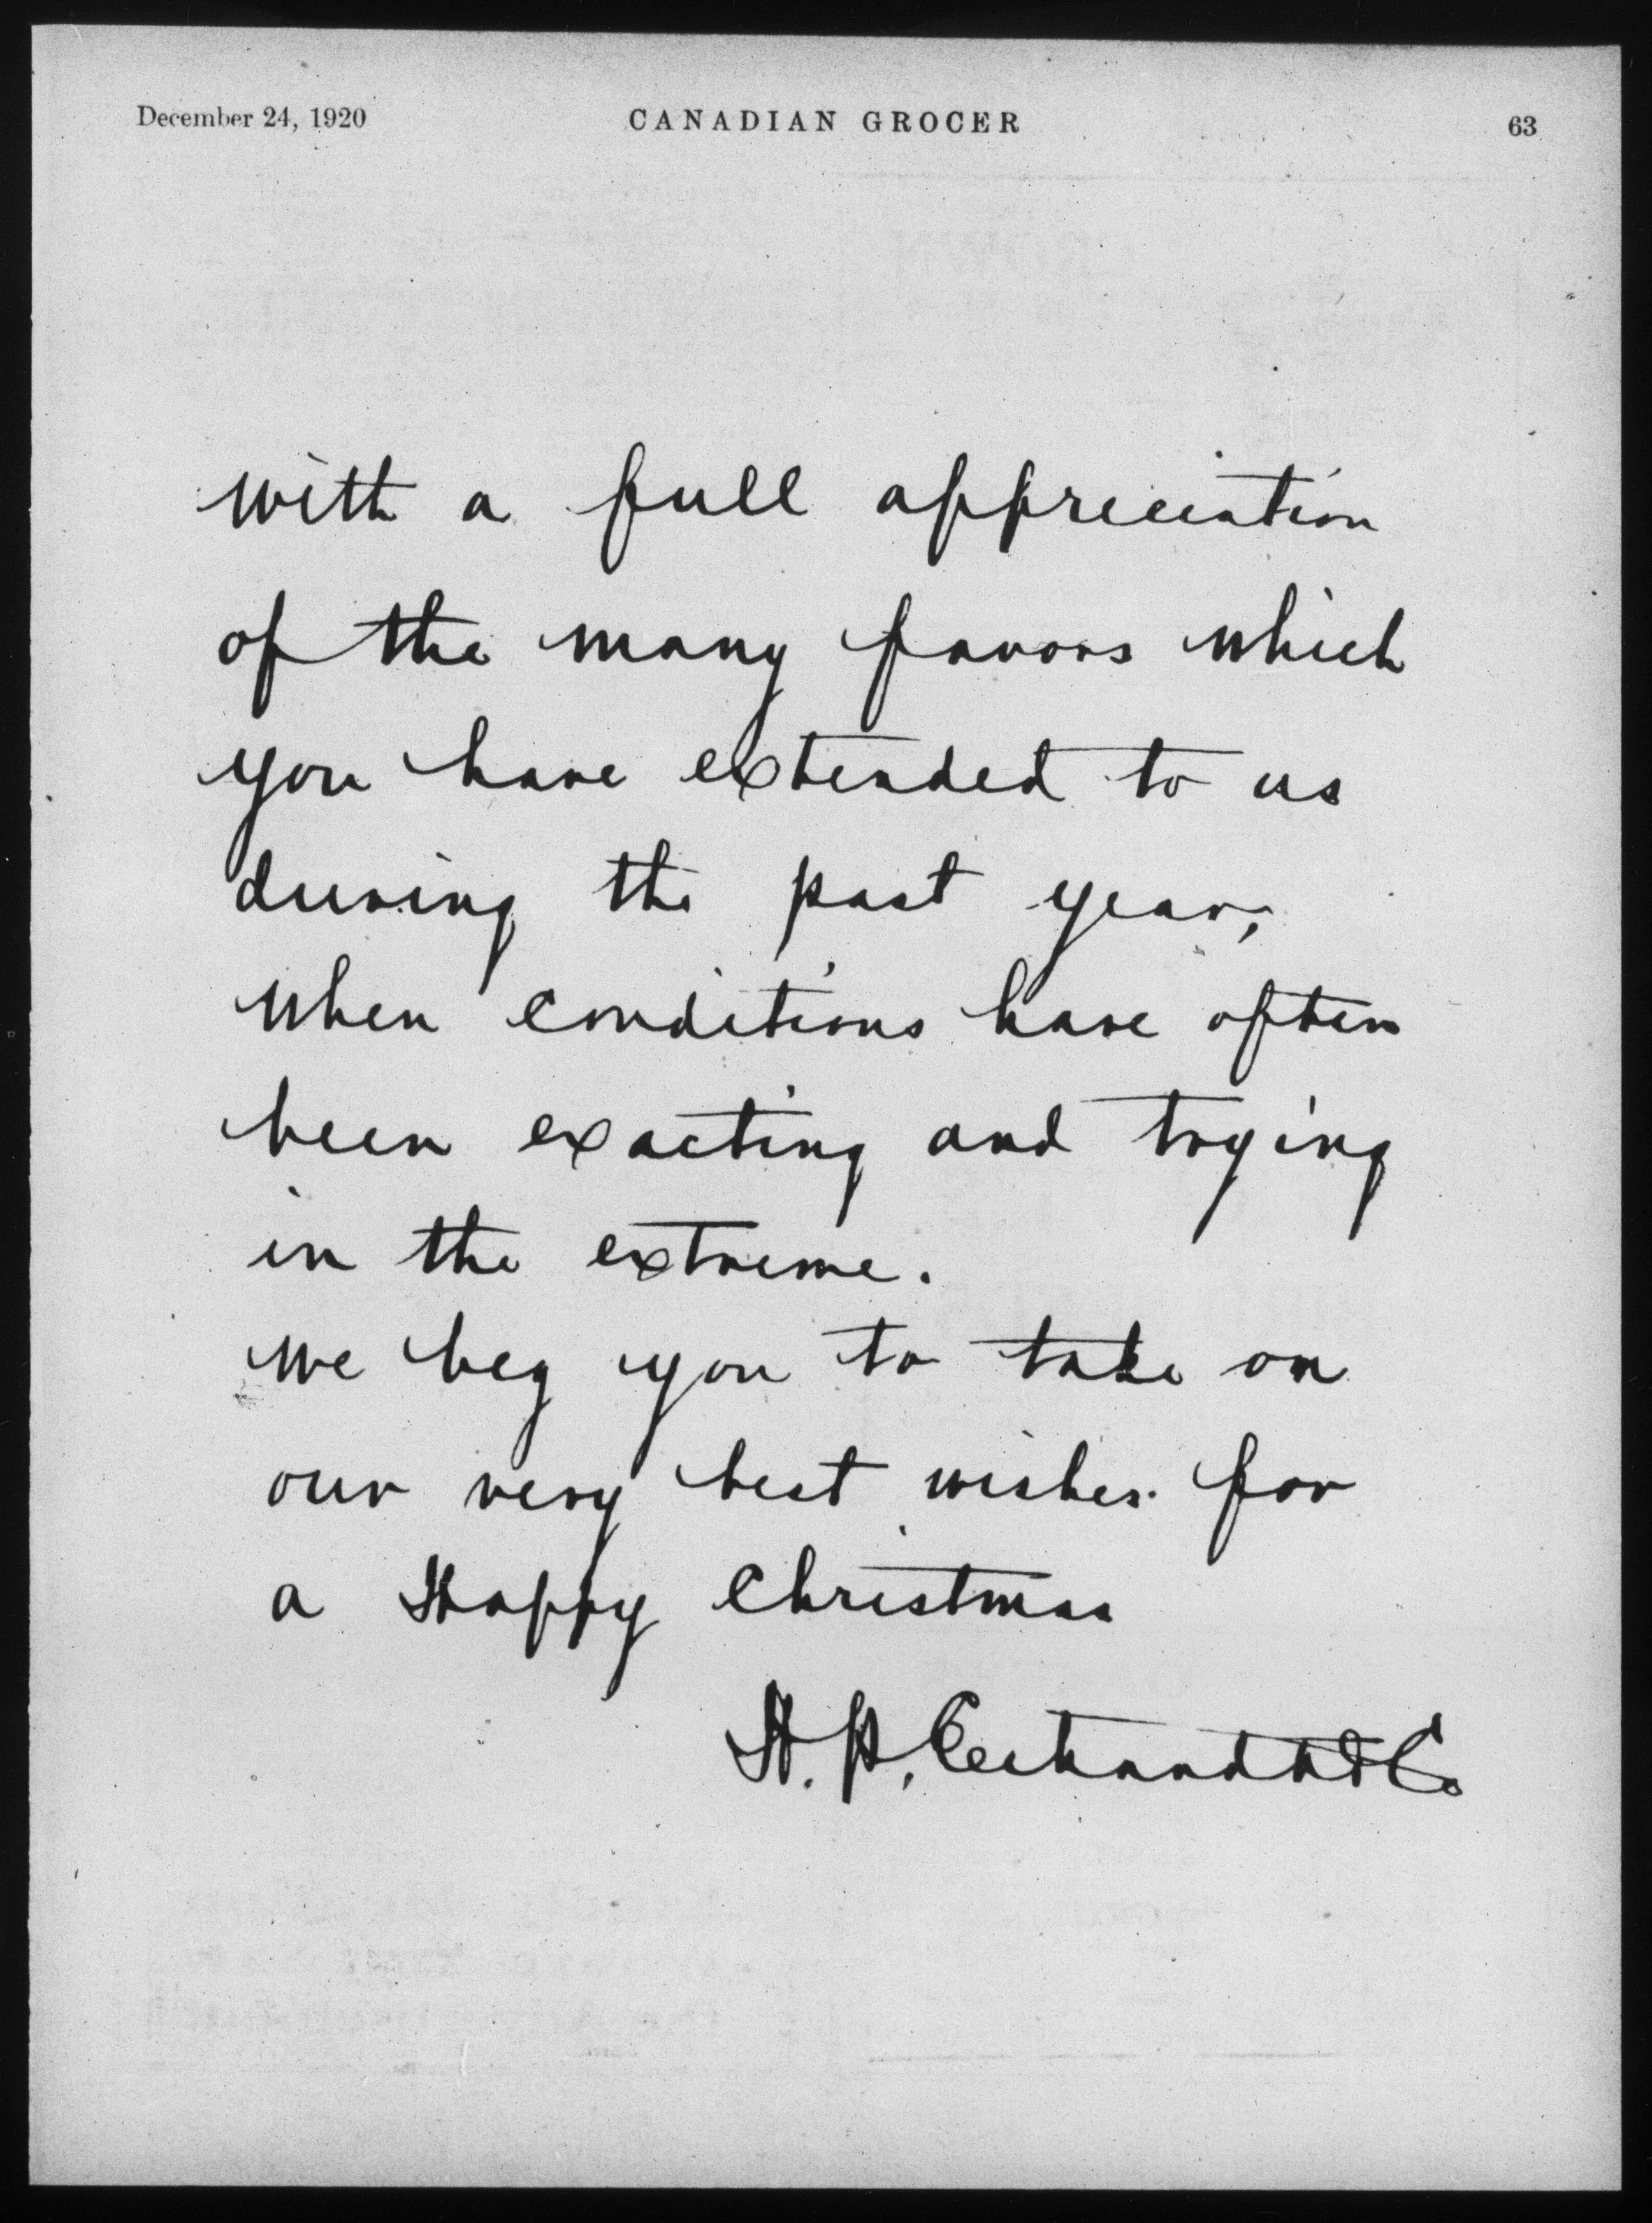 December 24, 1920 CANADIAN GROCER 63
with a full appreciation
of the many favors which
you have extended to us
during the past year,
when conditions have often
been exacting and trying
in the extreme.
we beg you to take on
our very best wishes for
a Happy Christmas
H. P. Eckardt & Co